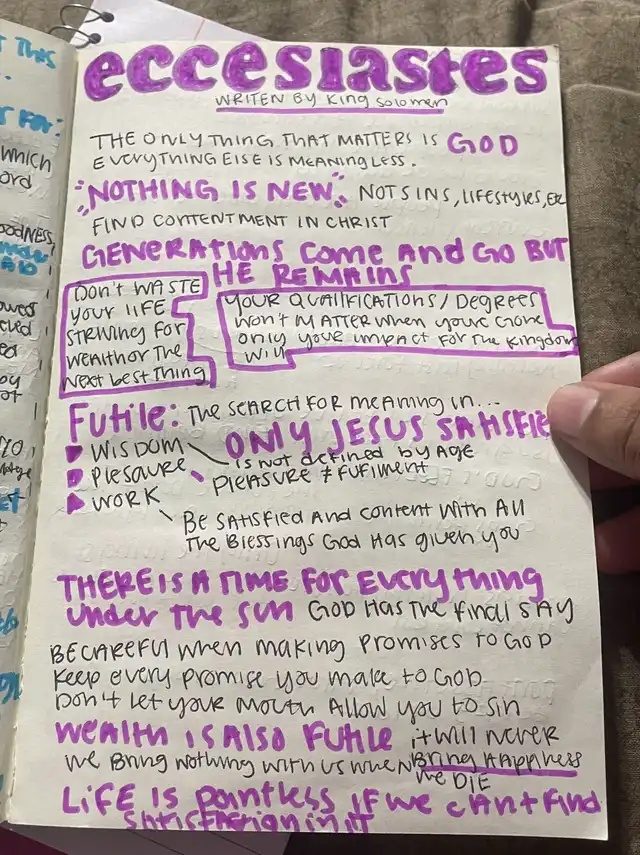 T THIS
R FOR:
which
ord
oodness,
ecceslastes
WRITEN BY King Solomen
THE ONLY THING THAT MATTERS IS GOD
EVERYTHING ELSE IS MEANINGLESS.
"NOTHING IS NEW" NOT SINS, LIFESTYLES, Etc
FIND CONTENTMENT IN CHRIST
GENERATIONS COME AND GO BUT
HE REMAINS
DON'T WASTE
YOUR LIFE
STRIVING FOR
WEALTH OR THE
NEXT BEST THING
YOUR QUALIFICATIONS/DEGREES
WON'T MATTER WHEN YOUR GONE
ONLY YOUR IMPACT FOR THE KINGDOM
WILL
FUTILE: THE SEARCH FOR MEANING IN...
ONLY JESUS SATISFIE
WISDOM
IS NOT DEFINED BY AGE
PLESAURE
PLEASURE ≠ FUFIMENT
WORK
BE SATISFIED AND CONTENT WITH All
THE BLESSINGS GOD HAS GIVEN YOU
THERE IS A TIME FOR EVERYTHING
UNDER THE SUN GOD HAS THE FINAll SAY
BE CAREFUL WHEN MAKING PROMISES TO GOD
KEEP EVERY PROMISE YOU MAKE TO GOD
DON'T LET YOUR MOUTH ALLOW YOU TO SIN
WEALTH IS Also FUTILE it Will NEVER
BRING HAPPINESS
WE BRING NOTHING WITH US WHEN
WE DIE
LIFE IS POINTLESS IF WE CAN'T FIND
SATISFACTION IN IT